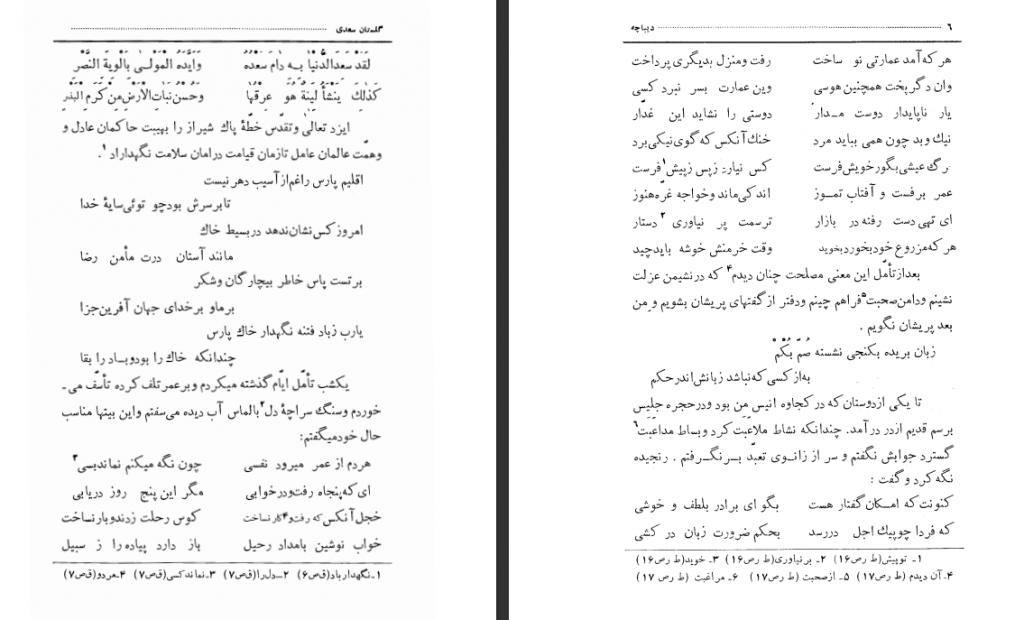 گلستان سعدی
لَقَدْ سَعَدَالدُّنْیا بِـهِ دامَ سَعْدُهُ وَاَیَّدَهُ الْمَوْلـی بِاَلْوِیَةِ النَّصْرِ
کَذٰلِكَ یَنْشَأُ لینَةٌ هُوَ عِرْقُها وَحُسْنُ نَباتِ الْاَرْضِ مِنْ کَرَمِ الْبَذْرِ
ایزد تعالیٰ وتقدّس خطّهٔ پاك شیراز را بهیبت حاکمان عادل و
وهمّت عالمان عامل تازمان قیامت درامان سلامت نگهداراد۱.
اقلیم پارس راغم ازآسیب دهر نیست
تا بر سرش بود چو توئی سایهٔ خدا
امروز کس نشان ندهد در بسیط خاك
مانند آستان درت مأمن رضا
بر تست پاس خاطر بیچارگان وشکر
بر ماو بر خدای جهان آفرین جزا
یارب زباد فتنه نگهدار خاك پارس
چندانکه خاك را بودوبـاد را بقا
یکشب تأمّل ایّام گذشته میکردم و بر عمر تلف کرده تأسّف می-
خوردم وسنگ سراچهٔ دل۲ بالماس آب دیده می سفتم واین بیتها مناسب
حال خود میگفتم:
هردم از عمر میرود نفسی چون نگه میکنم نماند بسی۳
ای که پنجاه رفت ودر خوابی مگر این پنج روز دریابی
خجل آنکس که رفت و۴ کار نساخت کوس رحلت زدند و بار نساخت
خواب نوشین بامداد رحیل باز دارد پیاده را ز سبیل
۱ـ نگهدار باد(ق ص۶) ۲ـ دل را(ق ص۷) ۳ـ نماند کسی(ق ص۷) ۴ـ مردو(ق ص۷)
۶ دیباچه
هر که آمد عمارتی نو ساخت رفت ومنزل بدیگری پرداخت
وان دگر پخت همچنین هوسی وین عمارت بسر نبرد کسی
یار ناپایدار دوست مـدار دوستی را نشاید این غدّار
نیك و بد چون همی بباید مرد خنك آنکس که گوی نیکی برد
برگ عیشی بگور خویش فرست کس نیارد زپس زپیش۱ فرست
عمر برفست و آفتاب تمـوز اندکی ماند وخواجه غرّه هنوز
ای تهی دست رفته در بازار ترسمت پر نیاوری۲ دستار
هر که مزروع خود بخورد بخوید وقت خرمنش خوشه باید چید
بعداز تأمّل این معنی مصلحت چنان دیدم۴ که در نشیمن عزلت
نشینم ودامن صحبت۵ فراهم چینم ودفتر از گفتهای پریشان بشویم و من
بعد پریشان نگویم .
زبان بریده بکنجی نشسته صُمٌّ بُکْمٌ
به از کسی که نباشد زبانش اندر حکم
تا یکی از دوستان که در کجاوه انیس من بود و در حجره جلیس
برسم قدیم از در در آمد. چندانکه نشاط ملاعبَت کرد و بساط مداعبَت۶
گسترد جوابش نگفتم و سر از زانـوی تعبّد بـر نگـرفتم . رنجیده
نگه کرد و گفت :
کنونت که امـکان گفتار هست بگو ای برادر بلطف و خوشی
که فردا چو پیك اجل دررسد بحکم ضرورت زبان در کشی
۱ـ توپیش(ط رص۱۶) ۲ـ برنیاوری(ط رص۱۶) ۳ـ خوید(ط رص۱۶)
۴ـ آن دیدم (ط رص۱۷) ۵ـ از صحبت (ط رص۱۷) ۶ـ مراغبت (ط رص ۱۷)